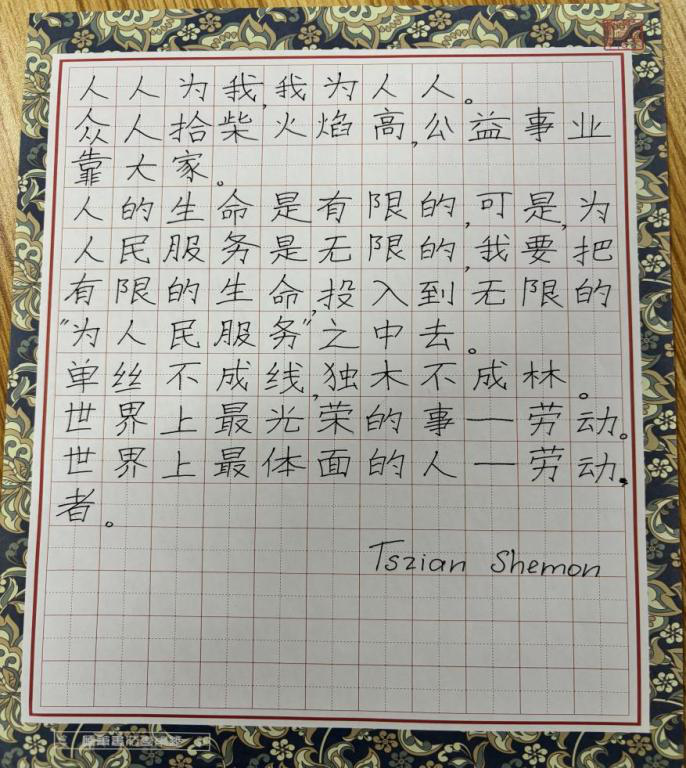 人人为我,我为人人。
众人拾柴火焰高,公益事业
靠大家。
人的生命是有限的,可是,为
人民服务是无限的,我要把
有限的生命,投入到无限的
"为人民服务"之中去。
单丝不成线,独木不成林。
世界上最光荣的事—劳动。
世界上最体面的人—劳动
者。
Tszian Shemon